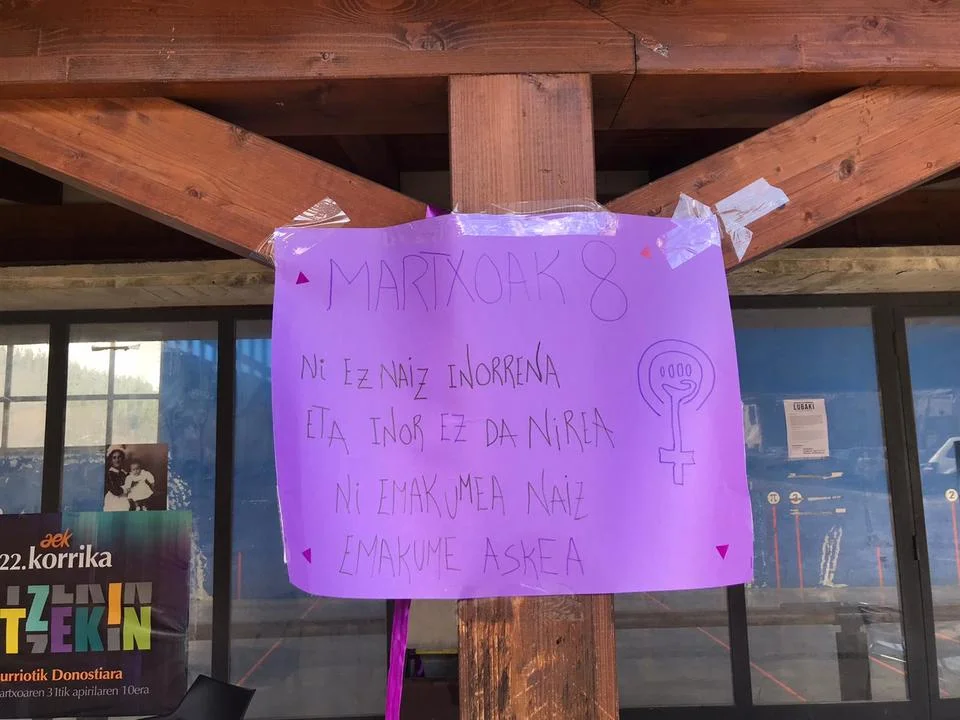 MARTXOAK 8
NI EZ NAIZ INORRENA
ETA INOR EZ DA NIREA
NI EMAKUMEA NAIZ
EMAKUME ASKEA
aek
22.korrika
TZEKIN
urriotik Donostiara
artxoaren 31tik apirilaren 10era
LUBAKI
π
2
2